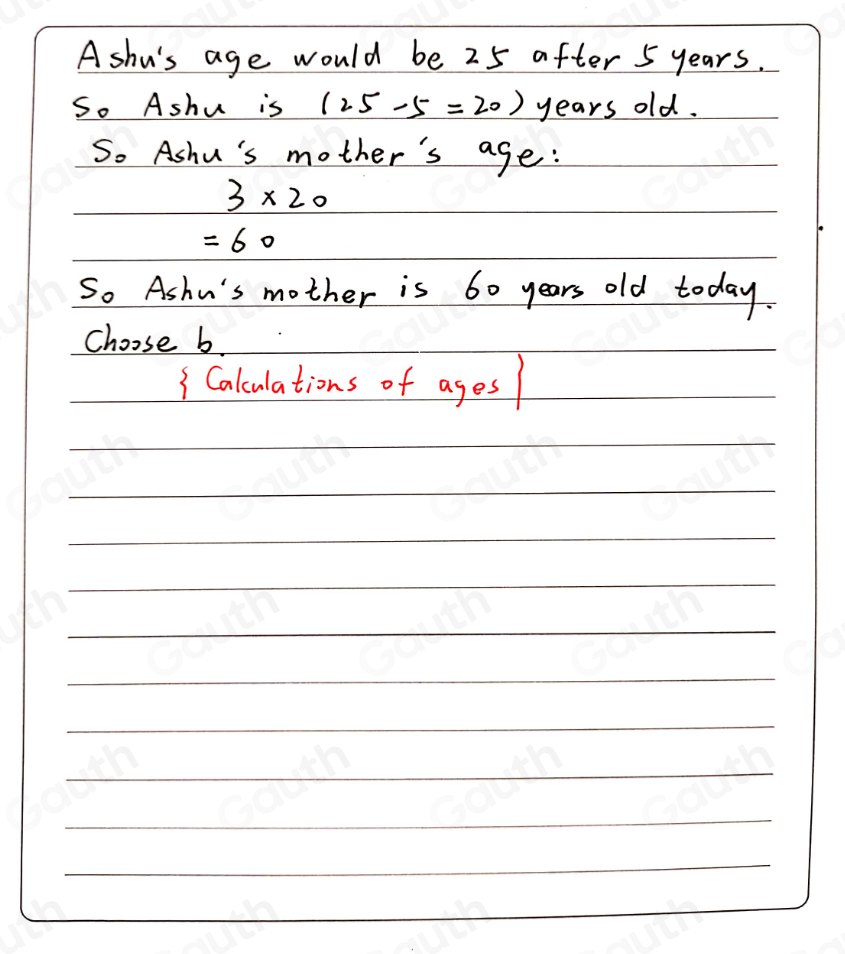 Ashu's age would be 25 after 5 years.
So Ashu is (25-5=20) years old.
So Ashu's mother's age:
3×20
=60
So Ashu's mother is 60 years old today.
Choose b.
{Calculations of ages}
Gauth